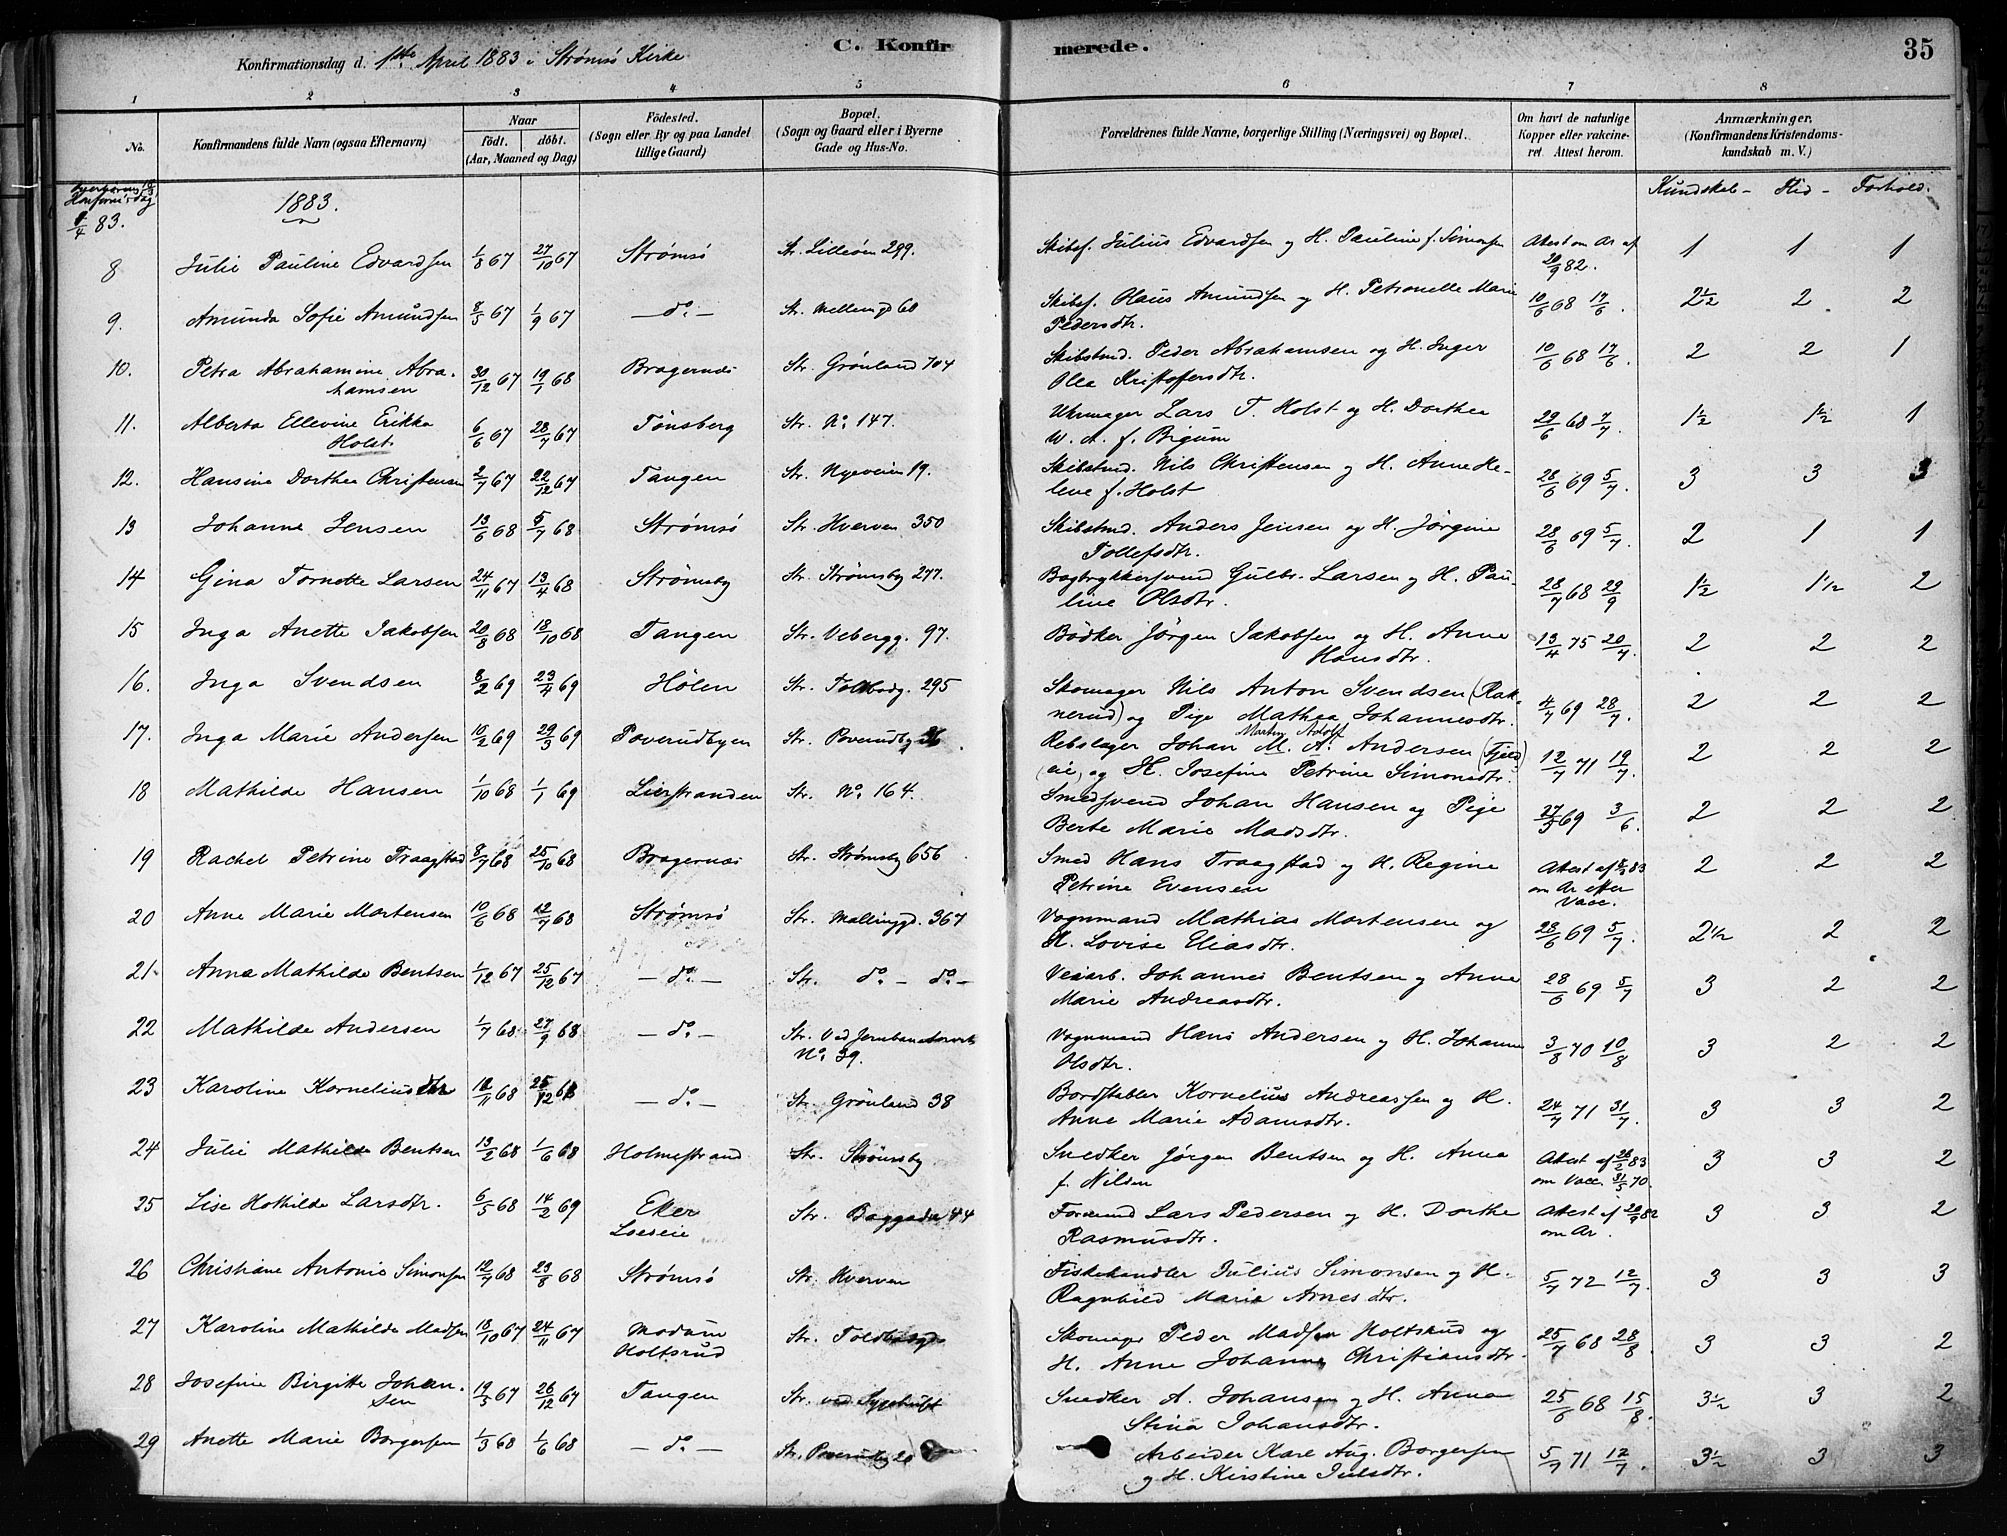 C. Konfirmerede.
35
Konfirmationsdag d. 1ste April 1883 i Strømsø Kirke
1 2 3 4 5 6 7 8
No.
Konfirmandens fulde Navn (ogsaa Efternavn)
Naar
født. døbt.
(Aar, Maaned og Dag)
Fødested.
(Sogn eller By og paa Landet
tillige Gaard)
Bopæl.
(Sogn og Gaard eller i Byerne
Gade og Hus-No.
Forældrenes fulde Navne, borgerlige Stilling (Næringsvei) og Bopæl.
Om havt de naturlige
Kopper eller vakcine-
ret. Attest herom.
Anmærkninger.
(Konfirmandens Kristendoms-
kundskab m. V.)
Kundskab - Flid - Forhold.
1/4 83.
1883.
8 Julie Pauline Edvardsen 1/8 67 27/10 67 Strømsø Str. Lilleøen 299. Skibsf. Julius Edvardsen og H. Pauline f. Simonsen Attest om Ar af 20/9 82. 1 1 1
9. Amunda Sofie Amundsen 8/5 67 1/9 67 - do. - Str. Mellemgd 60 Skibsf. Olaus Amundsen og H. Petronelle Marie
Pedersdtr. 10/6 68 17/6. 2½ 2 2
10. Petra Abrahamine Abra-
hamsen 30/12 67 19/1 68 Bragernæs Str. Grønland 704 Skibstmd. Peder Abrahamsen og H. Inger
Olea Kristoffersdtr. 10/6 68 17/6. 2 2 1
11. Alberta Ellevine Erikka
Holst 6/6 67 28/7 67 Tønsberg Str. No. 147. Uhrmager Lars T. Holst og H. Dorthea
W. A. f. Bigum 29/6 68 7/7. 1½ 1½ 1
12. Hansine Dorthea Christensen 2/7 67 22/12 67 Tangen Str. Nyeveien 19. Skibstmd. Nils Christensen og H. Anne He-
lene f. Holst 28/6 69 5/7. 3 3 3
13 Johanne Jensen 13/6 68 5/7 68 Strømsø Str. Hverven 350 Skibstmd. Anders Jensen og H. Jørgine
Tollefsdtr. 28/6 69 5/7. 2 1 1
14 Gina Tornette Larsen 24/11 67 13/4 68 Strømsby Str. Strømsby 277. Bogtrykkersvend Gulbr. Larsen og H. Pau-
line Olsdtr. 28/7 68 29/9 1½ 1½ 2
15 Inga Anette Jakobsen 20/8 68 18/10 68 Tangen Str. Vebergg. 97. Bødker Jørgen Jakobsen og H. Anne
Hansdtr. 13/4 75 20/4. 2 2 2
16. Inga Svendsen 8/2 69 23/4 69 Hølen Str. Toldbodg. 295 Skomager Nils Anton Svendsen (Rak-
nerud) og Pige Mathea Johannesdtr. 4/7 69 28/7. 2 2 2
17. Inga Marie Andersen 10/2 69 29/3 69 Poverudbyen Str. Poverudby 26 Rebslager Johan M. A. Andersen (Fjeld-
Martin Adolf
eie) og H. Josefine Petrine Simonsdtr. 12/7 71 19/7. 2 2 2
18 Mathilde Hansen 1/10 68 1/1 69 Lierstranden Str. No. 164. Smedsvend Johan Hansen og Pige
Berte Marie Madsdtr. 27/5 69 3/6. 2 2 2
19 Rachel Petrine Traagstad 8/7 68 25/10 68 Bragernæs Str. Strømsby 656 Smed Hans Traagstad og H. Regine
Petrine Evensen Attest af 83
om Ar efter
Vacc. 2 2 2
20 Anne Marie Mortensen 10/6 68 12/7 68 Strømsø Str. Mellemgd. 367 Vognmand Mathias Mortensen og
H. Lovise Eliasdtr. 28/6 69 5/7. 2½ 2 2
21 Anna Mathilde Bentsen 1/12 67 25/12 67 - do. - Str. do. - do. - Veiarb. Johannes Bentsen og Anne
Marie Andreasdtr. 28/6 69 5/7 3 2 2
22 Mathilde Andersen 1/7 68 27/9 68 - do. - Str. Ved Jernbanetorvet
No. 39. Vognmand Hans Andersen og H. Johanne
Olsdtr. 3/8 70 10/8 3 2 2
23 Karoline Korneliusdtr 12/11 68 25/12 68 - do. - Str. Grønland 38 Bordstabler Kornelius Andreassen og H.
Anne Marie Adamsdtr. 24/7 71 31/7. 3 3 2
24 Julie Mathilde Bentsen 13/2 68 1/6 68 Holmestrand Str. Strømsby Snedker Jørgen Bentsen og H. Anna
f. Nilsen Attest af 26/2 83
om Vacc. 31/5 70. 3 3 2
25 Lise Hothilde Larsdtr. 6/5 68 14/2 69 Eker
Loeseie Str. Baggaden 44 Formand Lars Pedersen og H. Dorthe
Rasmusdtr. Attest af 29/9 82
om Ar. 3 3 2
26 Christiane Antonie Simonsen 12/7 68 23/8 68 Strømsø Str. Hverven Fiskehandler Julius Simonsen og H.
Ragnhild Marie Arnesdtr. 5/7 72 12/7 3 3 3
27 Karoline Mathilde Madsen 18/10 67 24/11 67 Modum
Holtsrud Str. Toldbodgd Skomager Peder Madsen Holtsrud og
H. Anne Johanne Christiansdtr. 25/7 68 28/8 3 3 2
28 Josefine Birgitte Johan-
sen 19/5 67 26/12 67 Tangen Str. ved Sygehuset Snedker A. Johansen og H. Anna
Stina Johansdtr. 25/6 68 15/8. 3½ 3 2
29 Anette Marie Borgersen 1/3 68 1/6 68 - do. - Str. Poverudby 20 Arbeider Karl Aug. Borgersen
og H. Kirstine Julsdtr. 5/7 71 12/7. 3½ 3 3